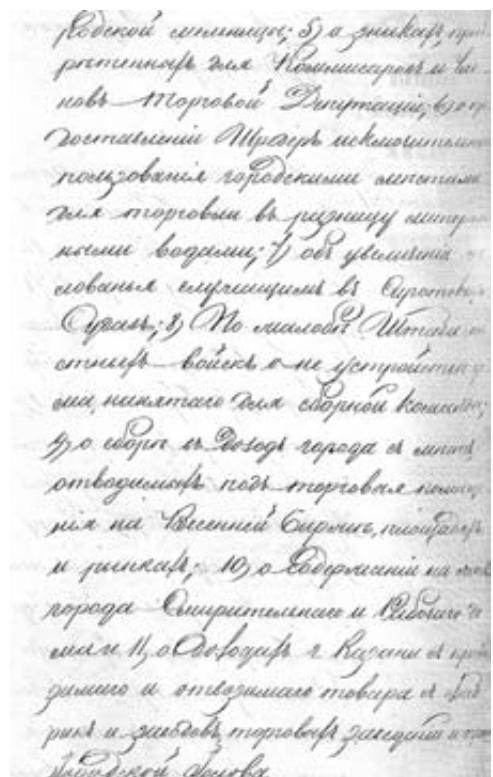 родской мельницы; 5) о значкахъ, прі
рѣтенныхъ для Коммисаровъ и чле
новъ Торговой Депутаціи; 6) о пр
доставленіи исключительна
пользованія городскими мѣстами
для торговли въ розницу минера
ными водами; 7) объ увеличеніи
жалованья служащимъ въ Сиротскомъ
Судѣ; 8) По жалобѣ Штаба
войскъ о не устройствѣ
ма, нанятаго для сборной команды;
9) о сборѣ въ доходъ города съ мѣстъ,
отводимыхъ подъ торговыя помѣще
нія на Весенней Биржѣ, площадяхъ
и рынкахъ; 10) о содержаніи на
города Смирительнаго и Рабочаго до
ма и 11) о доходахъ г. Казани съ приво
зимаго и отвозимаго товара съ фаб
рикъ и заводовъ, торговыхъ заведеній и